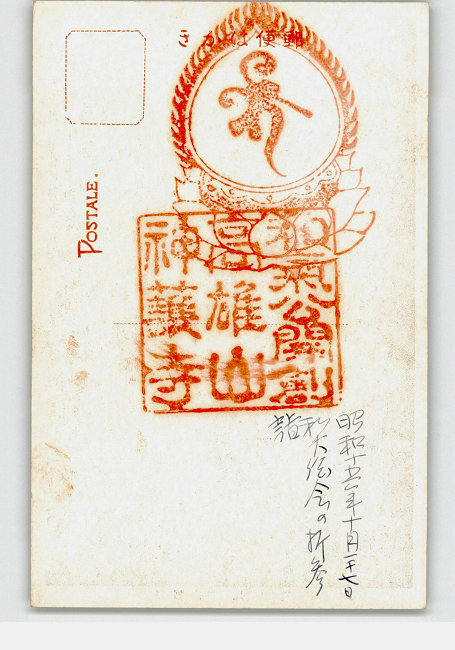 郵便はがき
POSTALE.
和氣公開創
高雄山
神護寺
昭和十五年十月二十七日
の折参
詣